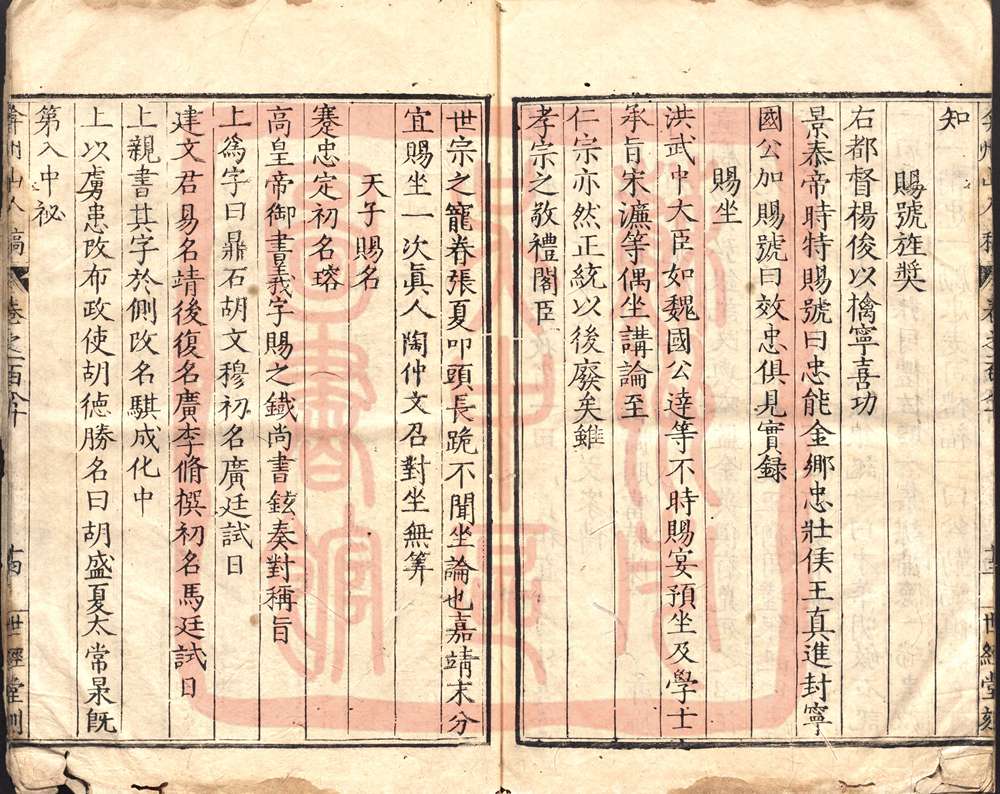 弇州山人稿 卷之一百 世經堂刻
知
賜號旌獎
右都督楊俊以擒寧喜功
景泰帝時特賜號曰忠能金鄉忠壯侯王真進封寧
國公加賜號曰效忠俱見實録
賜坐
洪武中大臣如魏國公達等不時賜宴預坐及學士
承旨宋濂等偶坐講論至
仁宗亦然正統以後廢矣雖
孝宗之敬禮閣臣
世宗之寵眷張夏叩頭長跪不聞坐論也嘉靖末分
宜賜坐一次眞人陶仲文召對坐無筭
天子賜名
蹇忠定初名瑢
高皇帝御書義字賜之鐵尚書鉉奏對稱旨
上爲字曰鼎石胡文穆初名廣廷試日
建文君易名靖後復名廣李脩撰初名馬廷試日
上親書其字於側改名騏成化中
上以虜患改布政使胡德勝名曰胡盛夏太常杲旣
第入中祕
弇州山人稿 卷之一百 十四 世經堂刻